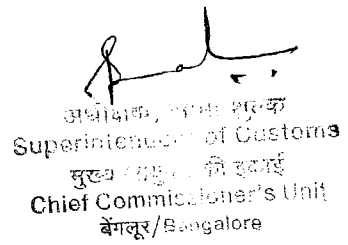 अधीक्षक, सीमा शुल्क
Superintendent of Customs
मुख्य आयुक्त की इकाई
Chief Commissioner's Unit
बेंगलूर/Bangalore